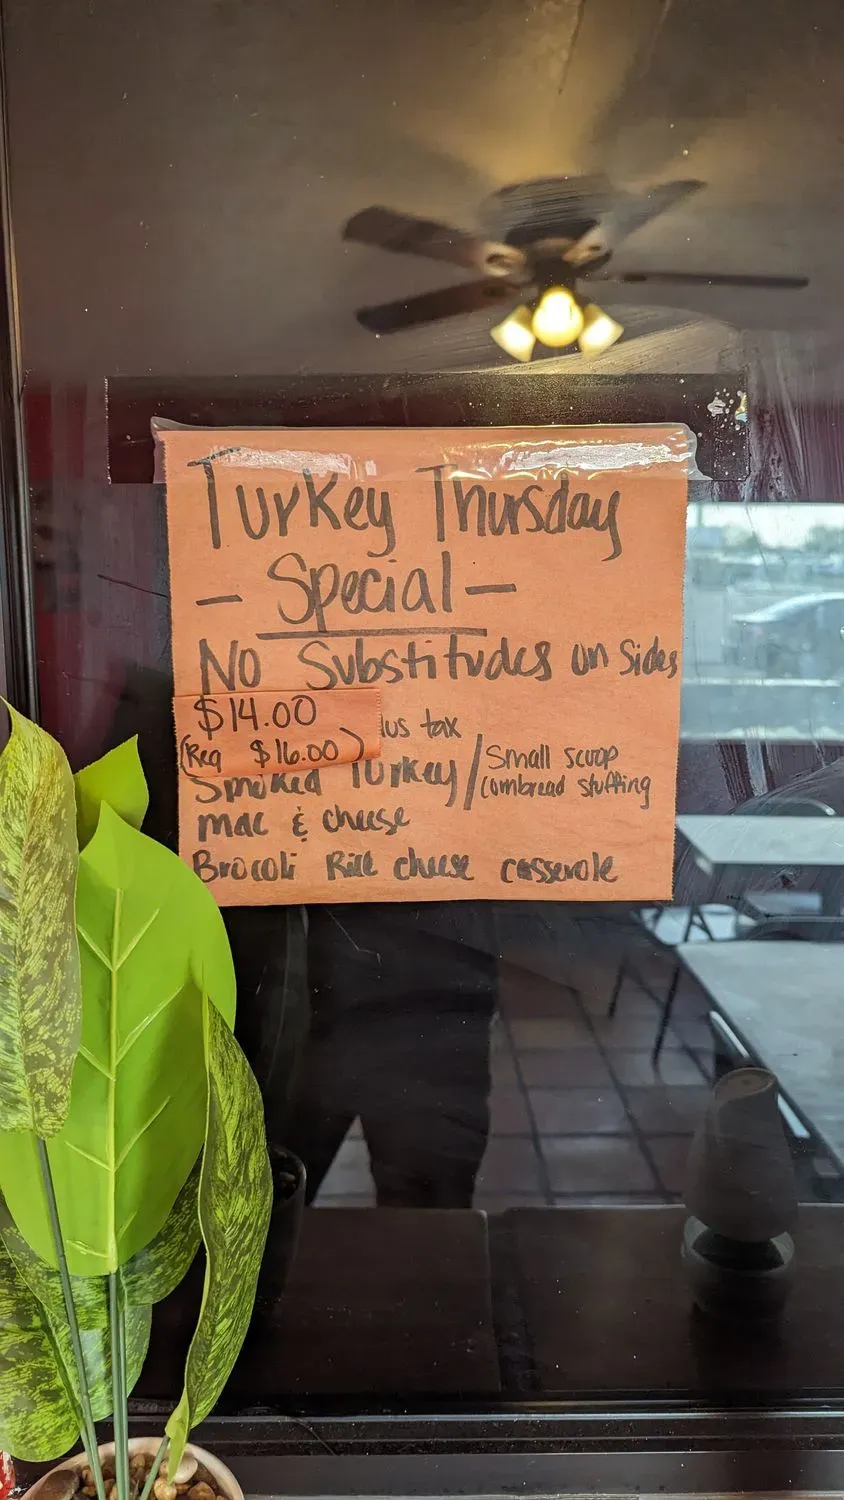 Turkey Thursday
- Special -
No Substitudes on Sides
$14.00 lus tax
(Reg $16.00)
Smoked Turkey / Small scoop
cornbread stuffing
mac & cheese
Brocoli Rice cheese casserole